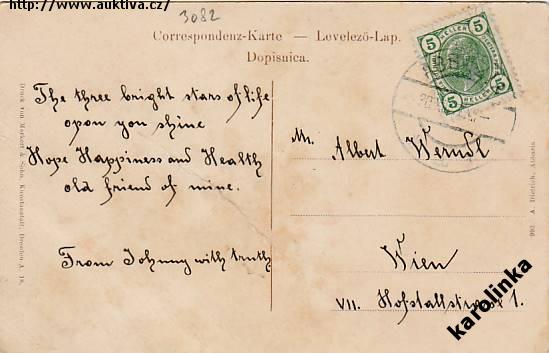 http://www.auktiva.cz/
3082
Correspondenz-Karte — Levelezö-Lap.
Dopisnica.
5 HELLER 5
5 HELLER 5
The three bright stars of life
upon you shine
Hope Happiness and Health
old friend of mine.
From Johnny with truth
Mr. Albert Werndl
Wien
VII. Hofstallstrasse 1.
Druck von Markert & Sohn, Kunstanstalt, Dresden-A. 18.
A. Dietrich,
karolinka